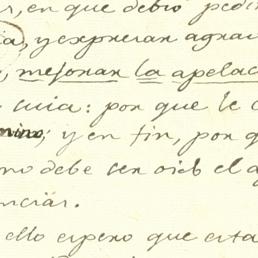 r, en que debio pedir
ia, y expresar agrav
, mejorar la apelac
cuia: por que le c
mino; y en fin, por q
no debe ser oido el a
enciar.
ello espero que esta